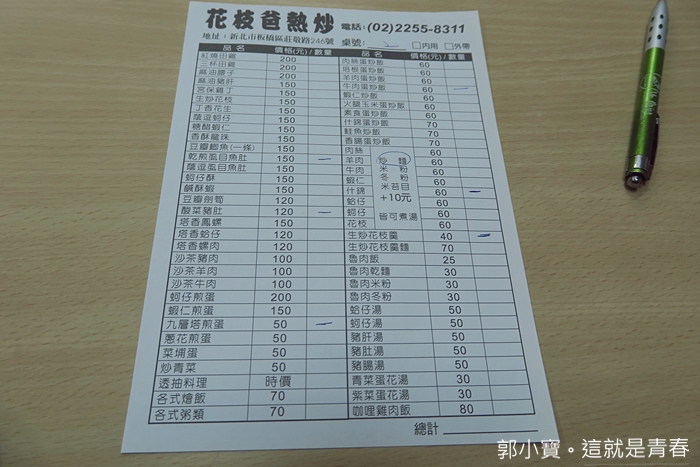 花枝爸熱炒 電話:(02)2255-8311
地址:新北市板橋區莊敬路246號 桌號: 2 □內用 □外帶
品名 價格(元)/數量 品名 價格(元)/數量
紅燒田雞 200 肉絲蛋炒飯 60
三杯田雞 200 培根蛋炒飯 60
麻油腰子 200 羊肉蛋炒飯 60
麻油豬肝 150 牛肉蛋炒飯 60
宮保雞丁 150 蝦仁炒飯 60
生炒花枝 150 火腿玉米蛋炒飯 60
丁香花生 150 素食蛋炒飯 60
蔭逗蚵仔 150 什錦蛋炒飯 70
糖醋蝦仁 150 鮭魚炒飯 70
香酥龍珠 150 香腸蛋炒飯 60
豆瓣鯽魚(一條) 150 肉絲 60
乾煎虱目魚肚 150 羊肉 炒麵 60
蔭逗虱目魚肚 150 牛肉 米粉 60
蚵仔酥 150 蝦仁 冬粉 60
鹹酥蝦 150 什錦 米苔目 60
豆瓣劍筍 120 蛤仔 +10元 60
酸菜豬肚 120 蚵仔 皆可煮湯 60
塔香鳳螺 150 花枝 60
塔香蛤仔 120 生炒花枝羹 40
塔香螺肉 120 生炒花枝羹麵 70
沙茶豬肉 100 魯肉飯 25
沙茶羊肉 100 魯肉乾麵 30
沙茶牛肉 100 魯肉米粉 30
蚵仔煎蛋 200 魯肉冬粉 30
蝦仁煎蛋 150 蛤仔湯 50
九層塔煎蛋 50 蚵仔湯 50
蔥花煎蛋 50 豬肝湯 50
菜埔蛋 50 豬肚湯 50
炒青菜 50 豬腸湯 50
透抽料理 時價 青菜蛋花湯 30
各式燴飯 70 紫菜蛋花湯 30
各式粥類 70 咖哩雞肉飯 80
總計
郭小寶。這就是青春